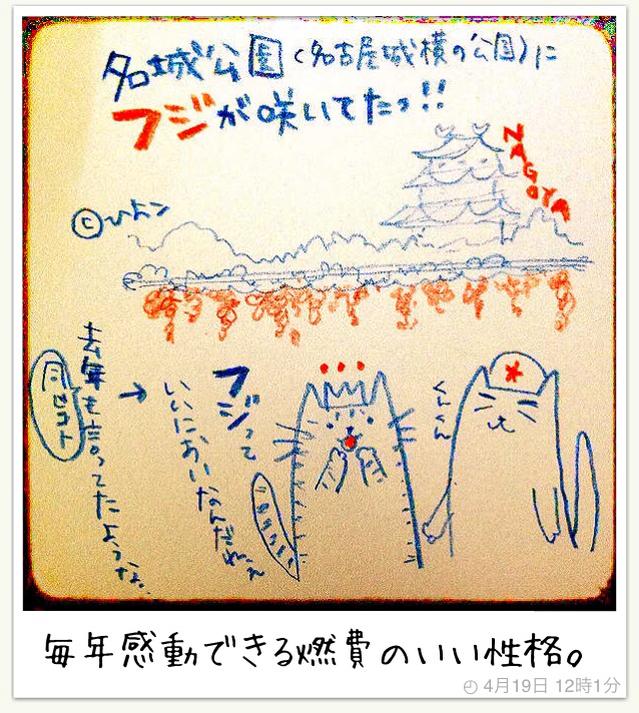 名城公園(名古屋城横の公園)に
フジが咲いてたっ!!
NAGOYA
©ひよこ
くんくん
フジって
いいにおいなんだねぇ
→
去年も言ってたような。
同じコト
毎年感動できる燃費のいい性格。
4月19日 12時1分